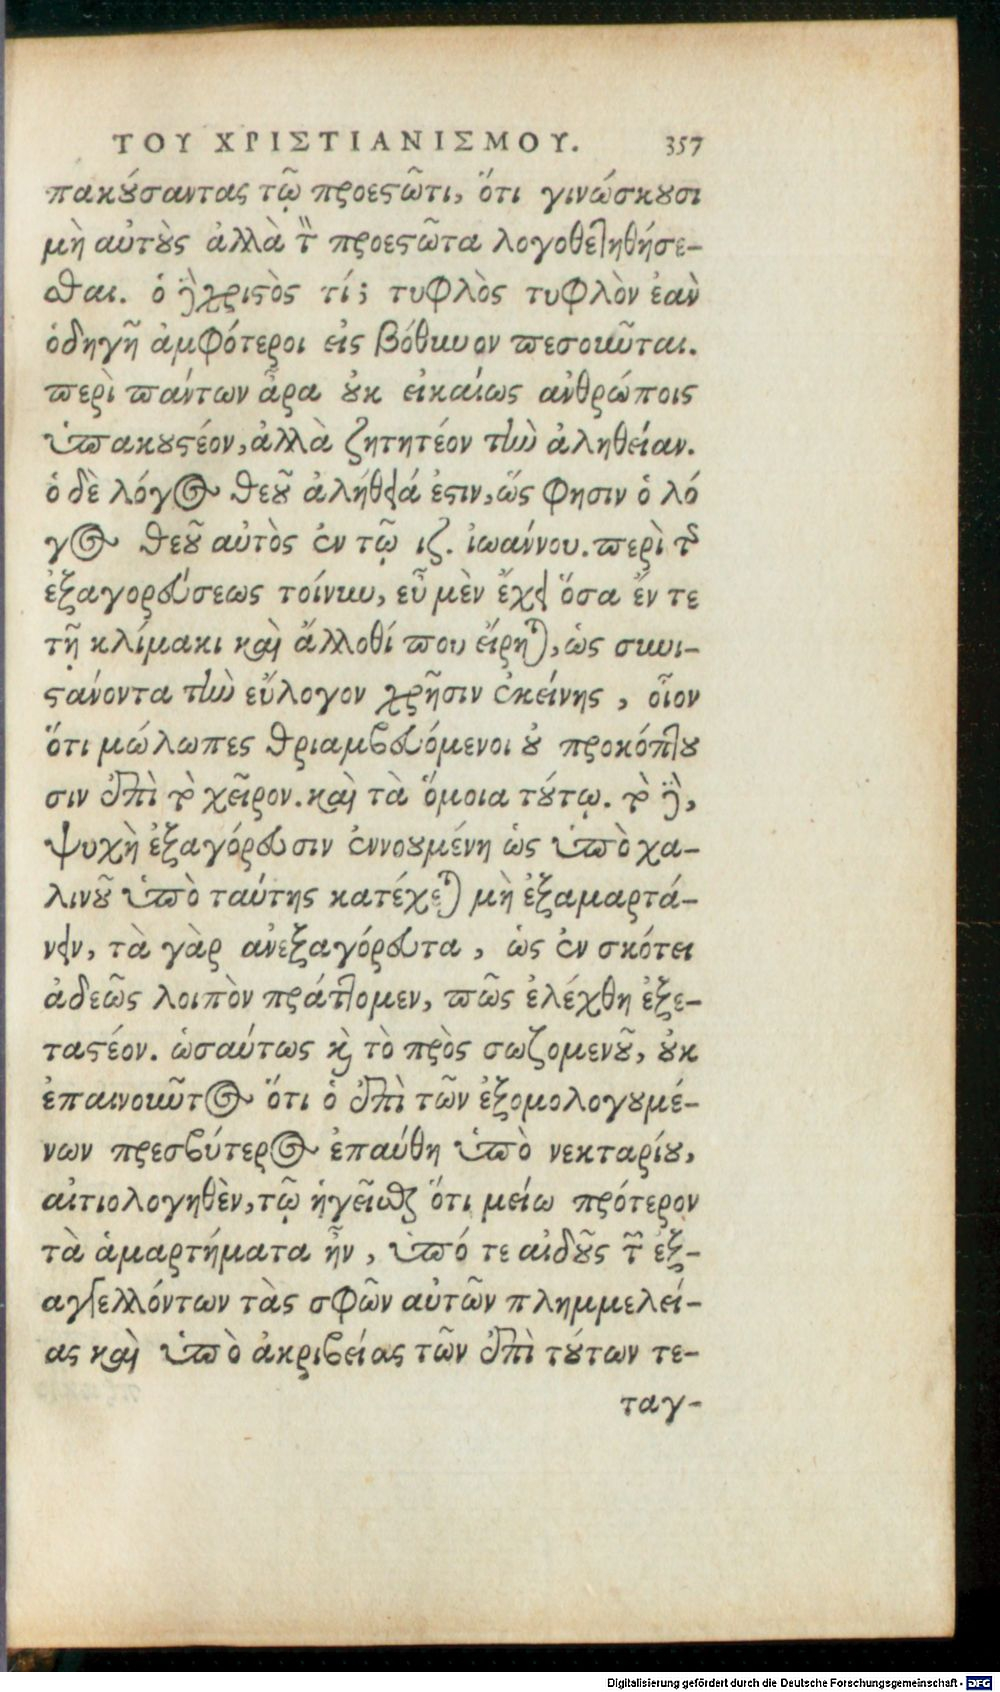 ΤΟΥ ΧΡΙΣΤΙΑΝΙΣΜΟΥ. 357
πακούσαντας τῷ προεστῶτι, ὅτι γινώσκουσι
μὴ αὐτοὺς ἀλλὰ τὸν προεστῶτα λογοθετηθήσε-
σθαι. ὁ δὲ χριστὸς τί; τυφλὸς τυφλὸν ἐὰν
ὁδηγῇ ἀμφότεροι εἰς βόθυνον πεσοῦνται.
περὶ πάντων ἆρα οὐκ εἰκαίως ἀνθρώποις
ὑπακουστέον, ἀλλὰ ζητητέον τὴν ἀληθείαν.
ὁ δὲ λόγος θεοῦ ἀλήθειά ἐστιν, ὥς φησιν ὁ λό
γος θεοῦ αὐτὸς ἐν τῷ ιζ. ἰωάννου. περὶ τῆς
ἐξαγορεύσεως τοίνυν, εὖ μὲν ἔχει ὅσα ἔν τε
τῇ κλίμακι καὶ ἄλλοθί που εἴρηται, ὡς συνι-
στάνοντα τὴν εὔλογον χρῆσιν ἐκείνης, οἷον
ὅτι μώλωπες θριαμβευόμενοι οὐ προκόπτου
σιν ἐπὶ τὸ χεῖρον. καὶ τὰ ὅμοια τούτῳ. τὸ δὲ,
ψυχὴ ἐξαγόρευσιν ἐννοουμένη ὡς ὑπὸ χα-
λινοῦ ὑπὸ ταύτης κατέχεται μὴ ἐξαμαρτά-
νειν, τὰ γὰρ ἀνεξαγόρευτα, ὡς ἐν σκότει
ἀδεῶς λοιπὸν πράττομεν, πῶς ἐλέχθη ἐξε-
ταστέον. ὡσαύτως καὶ τὸ πρὸς σωζομενοῦ, οὐκ
ἐπαινοῦντος ὅτι ὁ ἐπὶ τῶν ἐξομολογουμέ-
νων πρεσβύτερος ἐπαύθη ὑπὸ νεκταρίου,
αἰτιολογηθὲν, τῷ ἡγεῖσθαι ὅτι μείω πρότερον
τὰ ἁμαρτήματα ἦν, ὑπό τε αἰδοῦς τῶν ἐξ-
αγγελλόντων τὰς σφῶν αὐτῶν πλημμελεί-
ας καὶ ὑπὸ ἀκριβείας τῶν ἐπὶ τούτων τε-
ταγ-
Digitalisierung gefördert durch die Deutsche Forschungsgemeinschaft - DFG